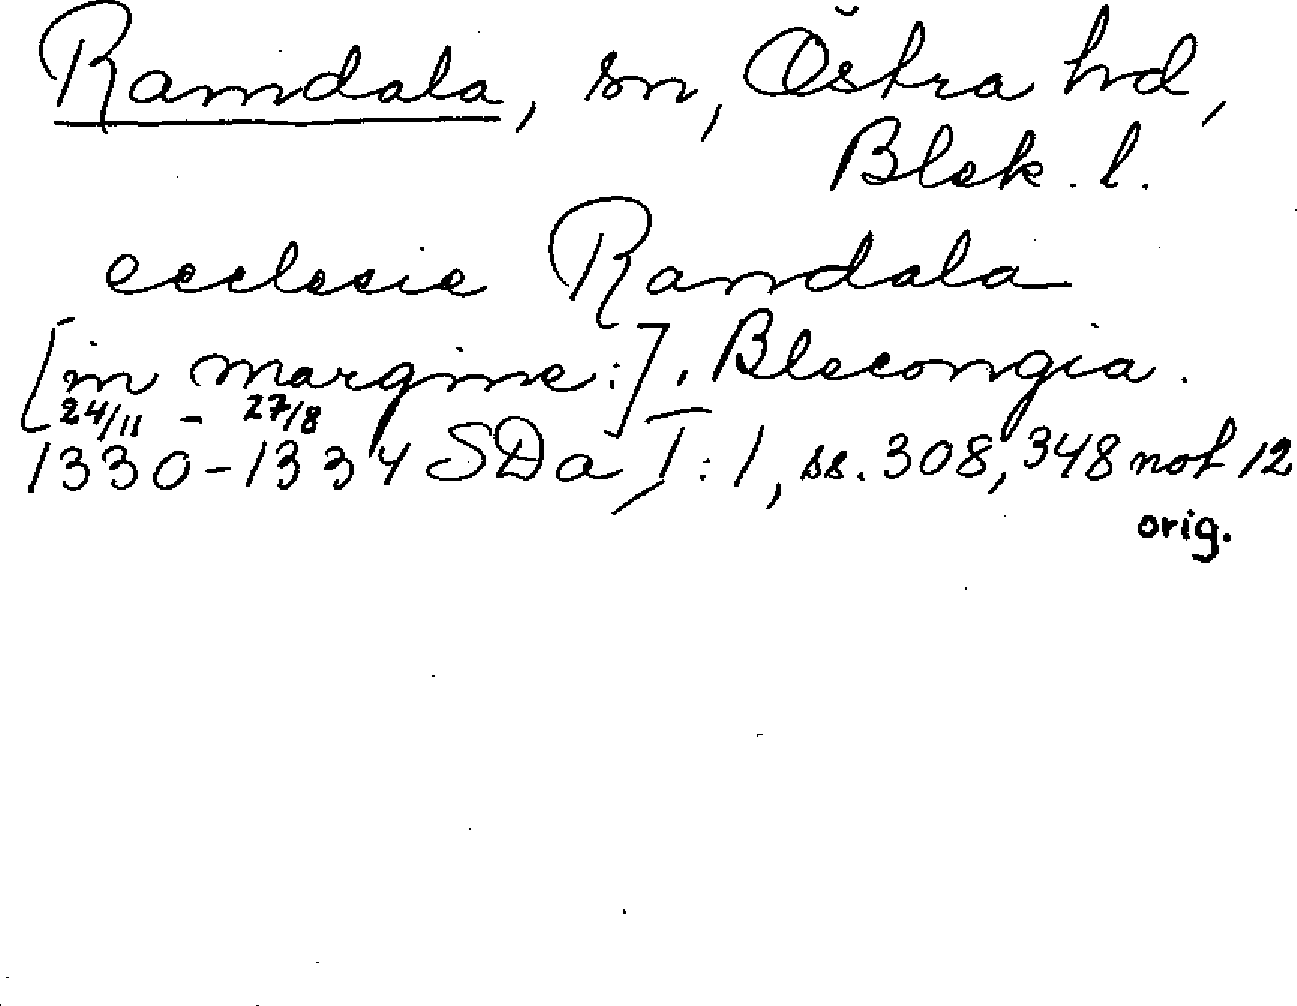 Ramdala, sn, Östra hd,
Blek. l.
ecclesie Ramdala
[in margine:], Blecongia.
24/11 - 27/8
1330-1334 SDa I:1, ss. 308, 348 not 12
orig.